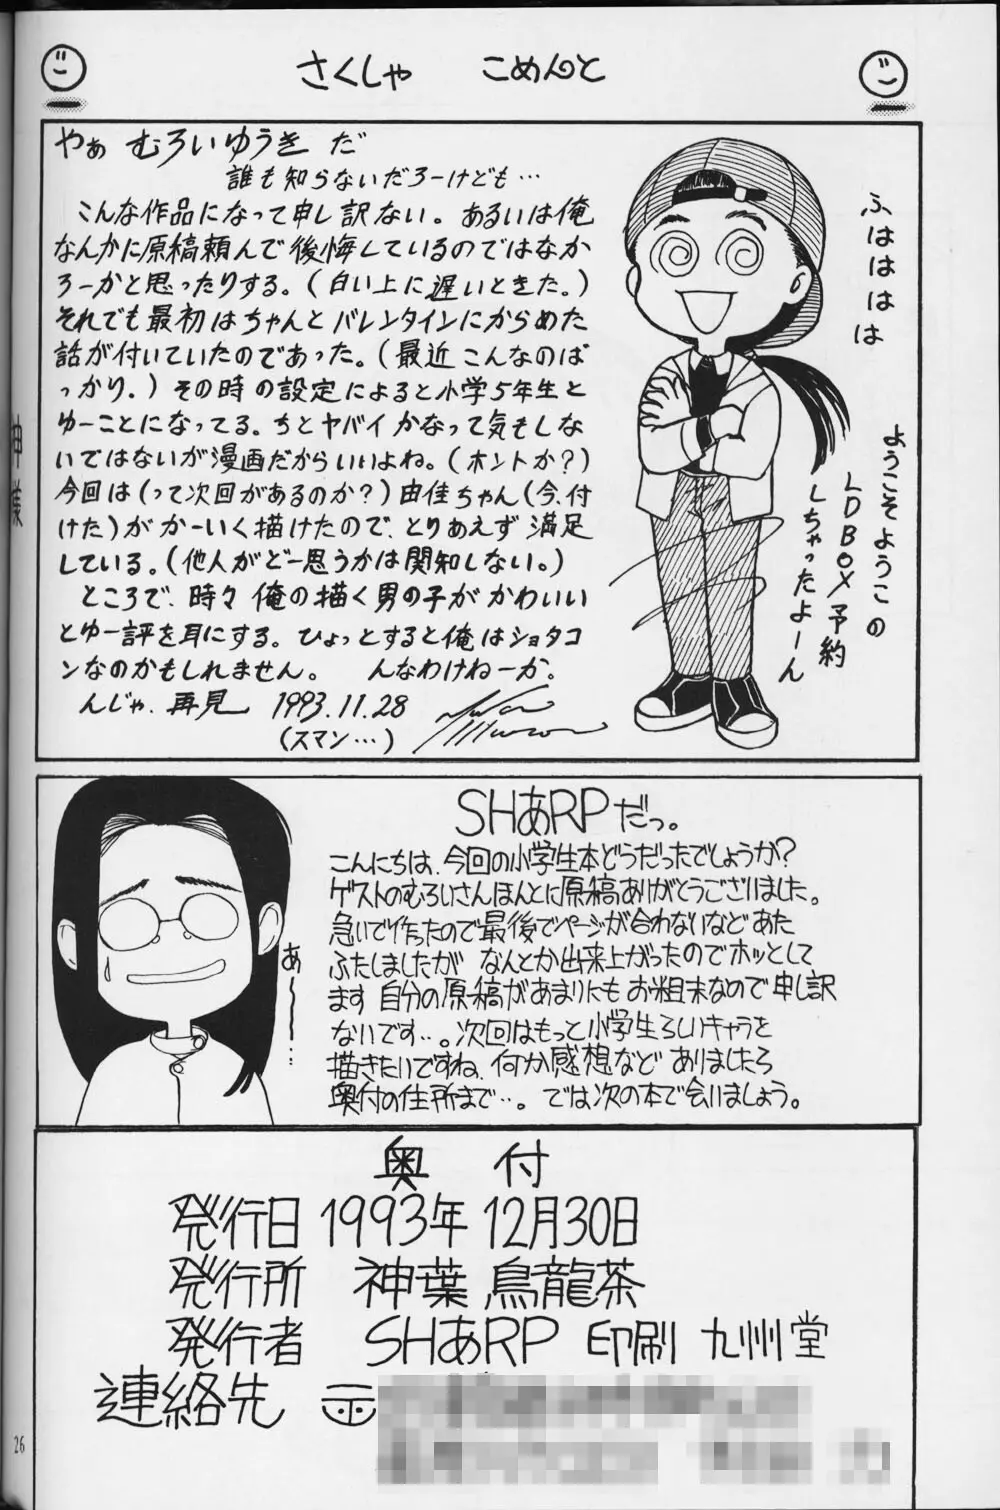 さくしゃ こめんと
やぁ むろいゆうき だ
誰も知らないだろーけども…
こんな作品になって申し訳ない。あるいは俺
なんかに原稿頼んで後悔しているのではなか
ろーかと思ったりする。(白い上に遅いときた。)
それでも最初はちゃんとバレンタインにからめた
話が付いていたのであった。(最近こんなのば
っかり.)その時の設定によると小学5年生と
ゆーことになってる。ちとヤバイかなって気もしな
いではないが漫画だからいいよね。(ホントか?)
今回は(って次回があるのか?)由佳ちゃん(今、付
けた)がかーいく描けたので、とりあえず満足
している。(他人がどー思うかは関知しない。)
ところで、時々俺の描く男の子がかわいい
とゆー評を耳にする。ひょっとすると俺はショタコ
ンなのかもしれません。 んなわけねーか.
んじゃ.再見 1993.11.28
(スマン…)
ふはははは
ようこそようこの
LDBOX予約
しちゃったよーん
SHあRPだっ。
こんにちは、今回の小学生本どうだったでしょうか?
ゲストのむろいさんほんとに原稿ありがとうございました。
急いで作ったので最後でページが合わないなどあた
ふたしましたが なんとか出来上がったのでホッとして
ます 自分の原稿があまりにもお粗末なので申し訳
ないです…。次回はもっと小学生らしいキャラを
描きたいですね、何か感想など ありましたら
奥付の住所まで…。では次の本で会いましょう。
あ〜…
奥付
発行日 1993年 12月30日
発行所 神葉 烏龍茶
発行者 SHあRP 印刷 九州堂
連絡先 〒
26